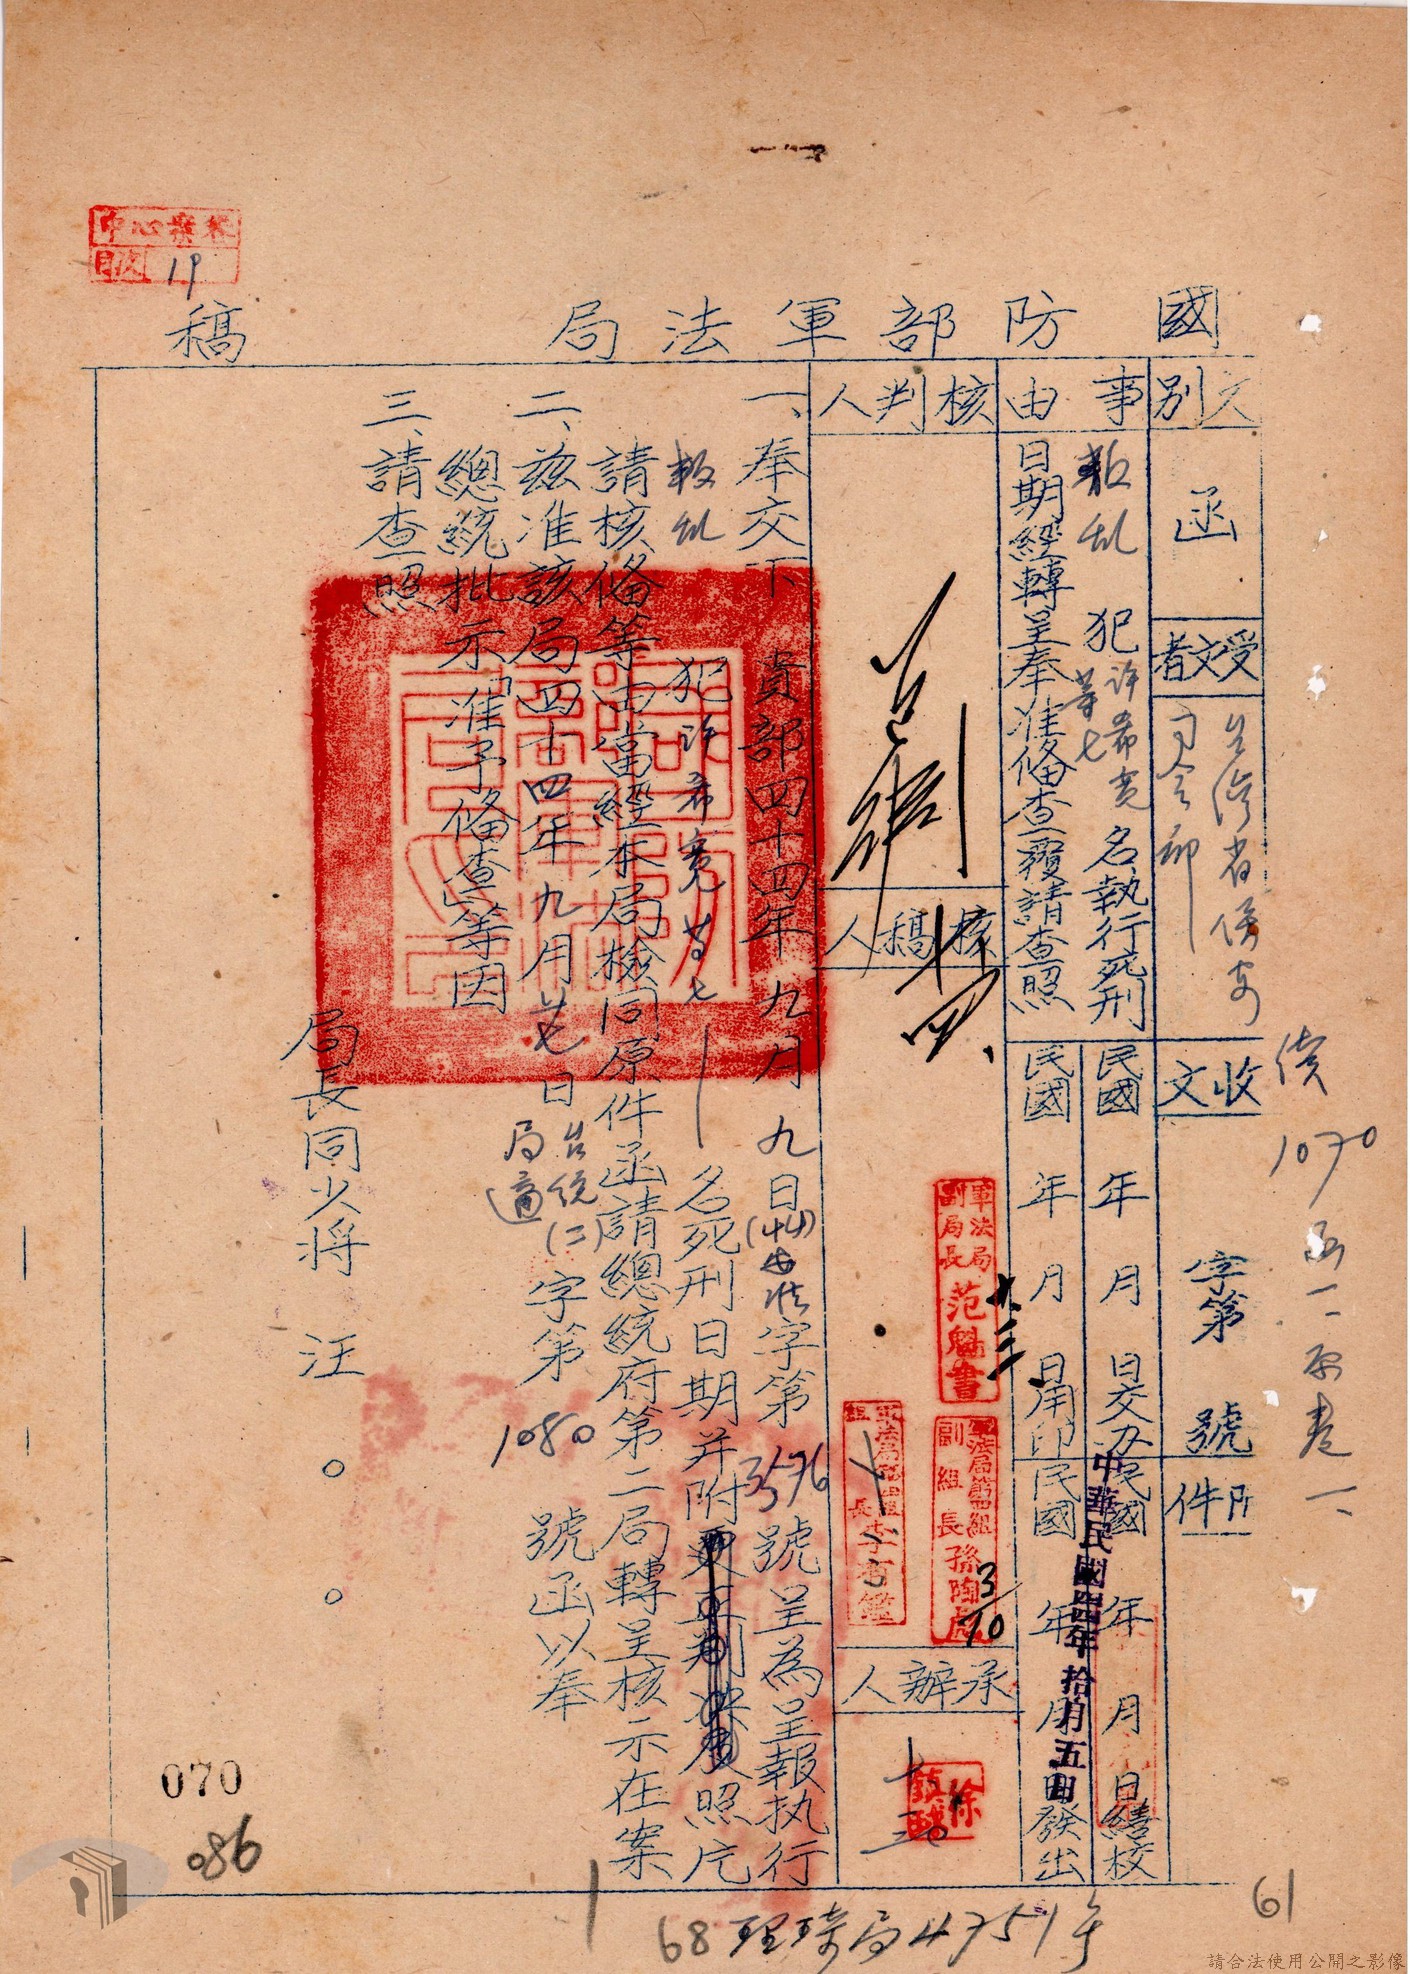 國防部軍法局 稿
文別
函
受文者
台灣省保安
司令部
收文
字第 號
附件
事由
叛乱犯許希寬等七名執行死刑
日期經轉呈奉准備查覆請查照
民國 年 月 日交办
民國 年 月 日用印
民國 年 月 日繕校
民國 年 月 日發出
中華民國四四年拾月五日
核判人
核稿人
軍法局
副局長
范魁書
副組長
孫陶
承辦人
一、奉交下 貴部四十四年九月九日(44)安准字第3576號呈為呈報执行
叛乱犯許希寬等七名死刑日期并附照片
請核備等由當經本局檢同原件函請總統府第二局轉呈核示在案
二、茲准該局四十四年九月廿七日台統(二)局適字第1080號函以奉
總統批示「准予備查」等因
三、請查照
局長同少將 汪 ○ ○
中心業務
目次 19
070
086
61
68
請合法使用公開之影像